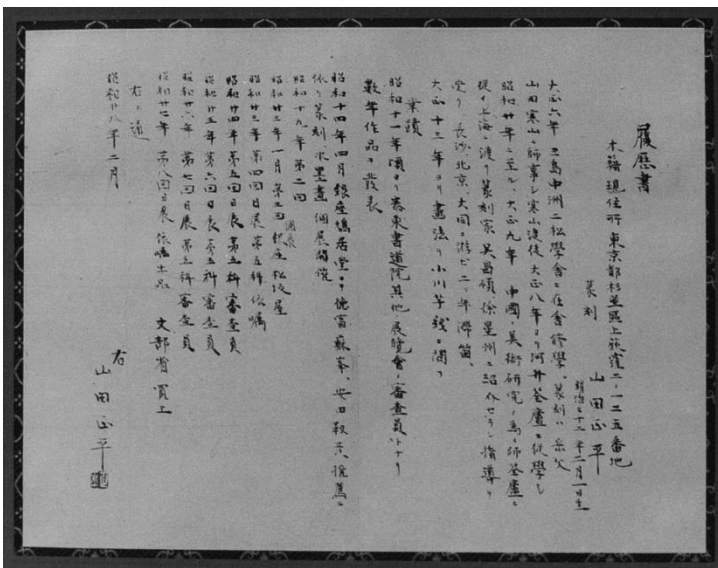 履歴書
本籍現住所 東京都杉並區上荻窪二ノ一二五番地
篆刻
山田正平
明治三十二年二月一日生
大正六年 三島中洲二松學會ニ在舎修學。篆刻ハ岳父
山田寒山ニ師事シ寒山没後大正八年ヨリ河井荃廬ニ従學シ
昭和廿年ニ至ル、大正九年 中國ノ美術研究ノ爲メ師荃廬ニ
従イ上海ニ渡リ篆刻家吳昌碩、徐星州ニ紹介セラレ指導ヲ
受ク 長沙、北京、大同ニ游ビ二ヶ年滞留、
大正十三年ヨリ畫法ヲ小川芋銭ニ問フ
業蹟
昭和十一年頃ヨリ泰東書道院其他ノ展覧會ノ審査員トナリ
數年作品ヲ發表
昭和十四年四月銀座鳩居堂ニテ徳富蘇峯、安田靫彦ノ推薦ニ
依リ篆刻、水墨畫個展開催
昭和十九年 第二回
昭和廿三年一月第三回個展 銀座松坂屋
昭和廿三年 第四回日展第五科依嘱
昭和廿四年第五回日展第五科審査員
昭和廿五年第六回日展第五科審査員
昭和廿六年 第七回日展第五科審査員
昭和廿七年 第八回日展依嘱出品 文部省買上
右ノ通
昭和廿八年二月
右
山田正平